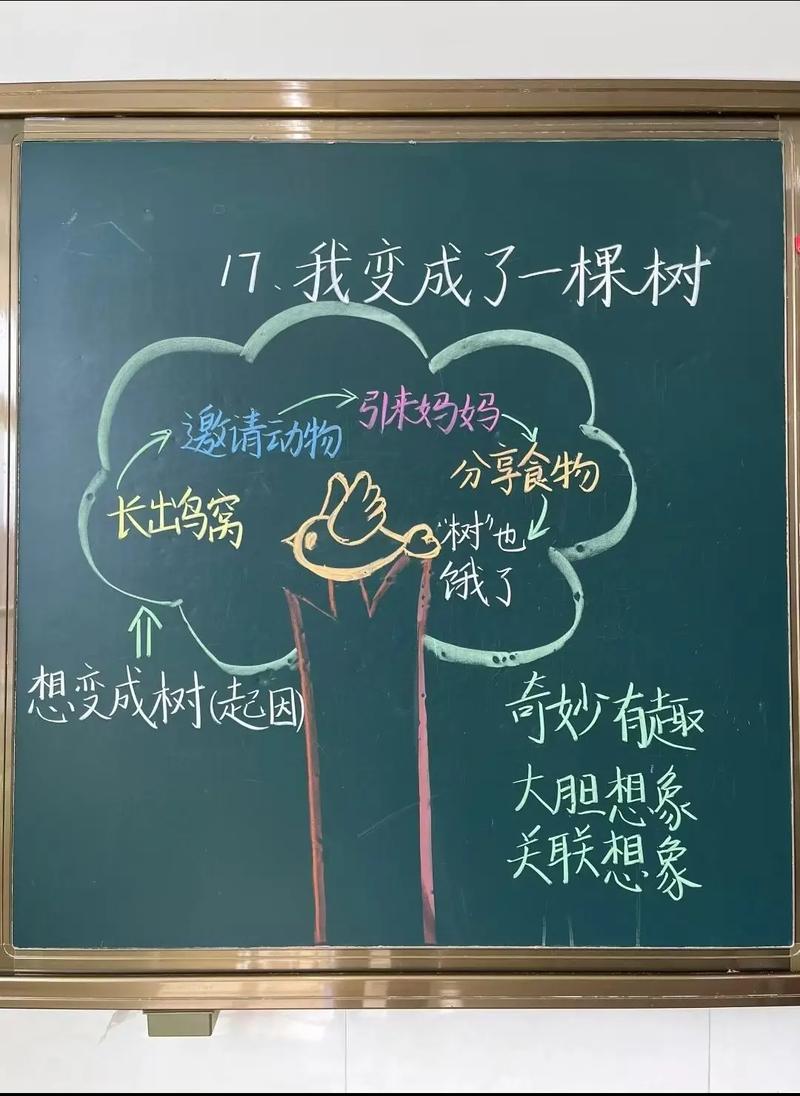 17、我变成了一棵树
想变成树(起因)
长出鸟窝
邀请动物
引来妈妈
分享食物
“树”也
饿了
奇妙有趣
大胆想象
关联想象